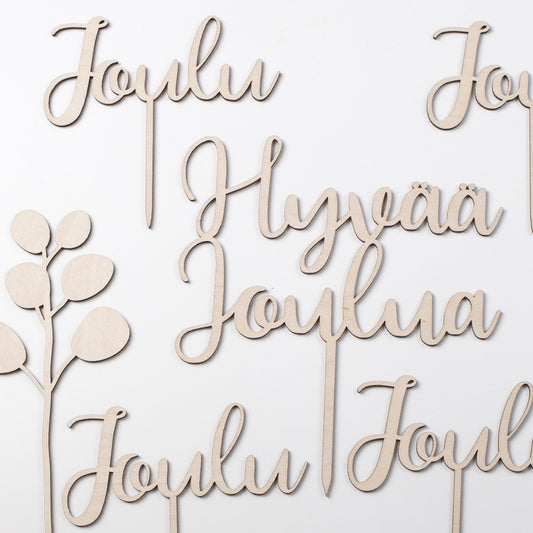 Joulu
Jou
Hyvää
Joulua
Joulu
Joulu